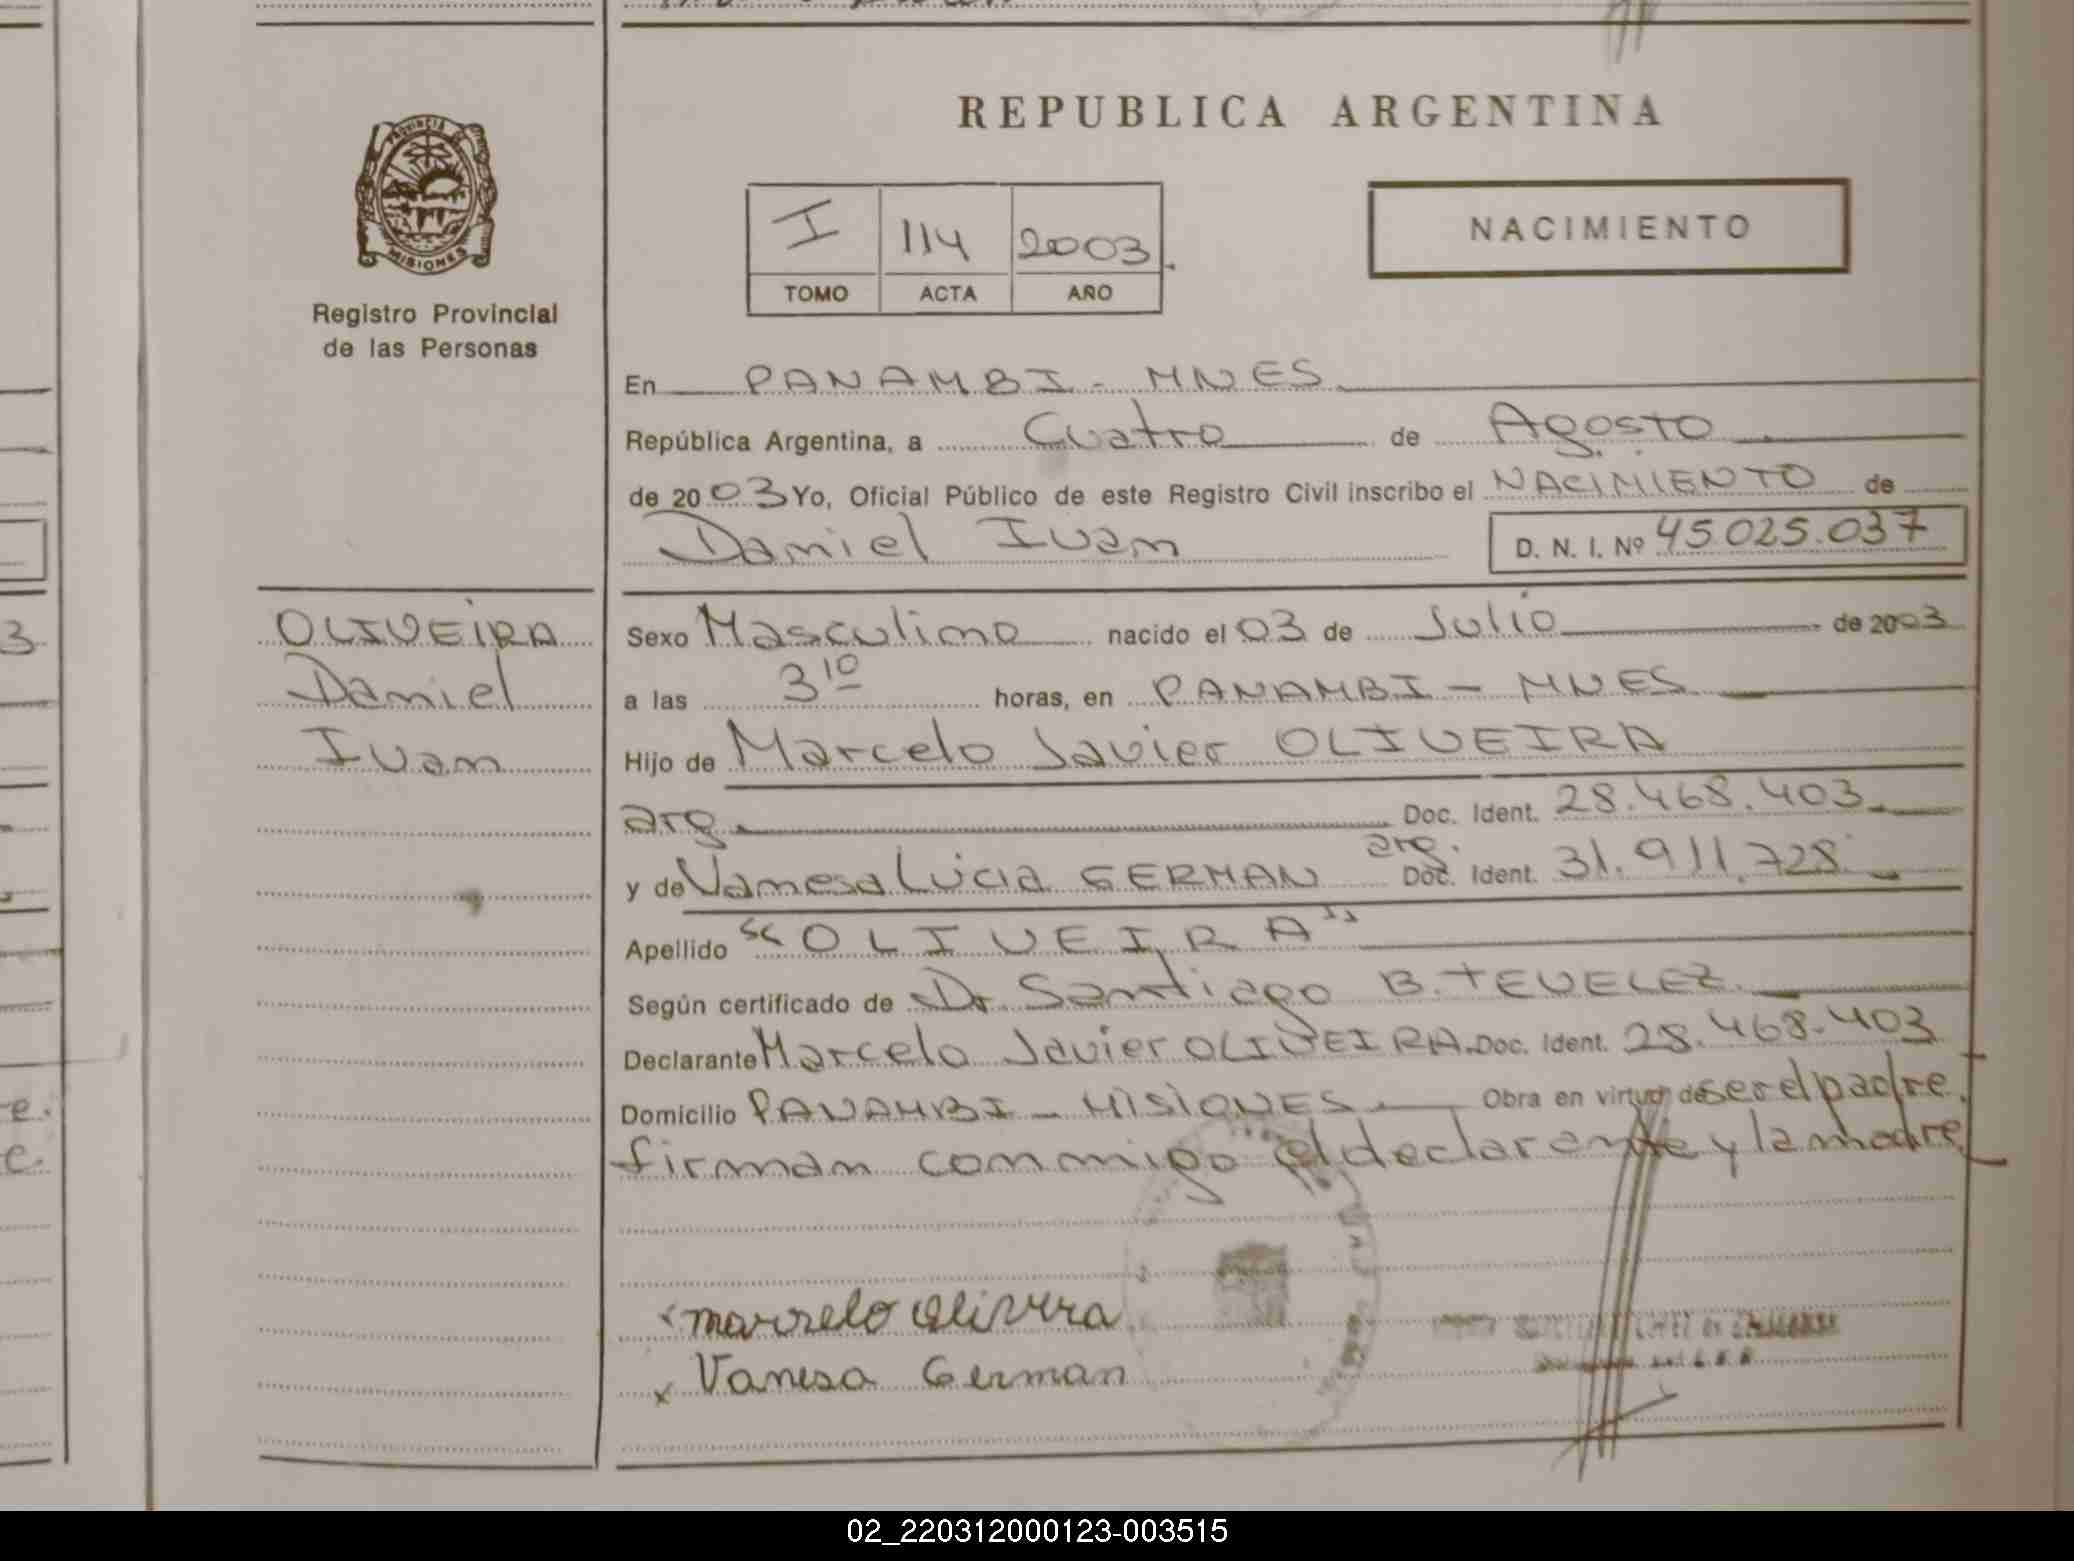 REPUBLICA ARGENTINA
PROVINCIA DE
MISIONES
Registro Provincial
de las Personas
I 114 2003
TOMO ACTA AÑO
NACIMIENTO
En PANAMBI - MNES
República Argentina, a Cuatro de Agosto
de 2003 Yo, Oficial Público de este Registro Civil inscribo el NACIMIENTO de
Daniel Ivan D. N. I. Nº 45.025.037
OLIVEIRA
Daniel
Ivan
Sexo Masculino nacido el 03 de Julio de 2003
a las 3 10 horas, en PANAMBI - MNES
Hijo de Marcelo Javier OLIVEIRA
arg. Doc. Ident. 28.468.403
y de Vanesa Lucia GERMAN arg. Doc. Ident. 31.911.728
Apellido "OLIVEIRA"
Según certificado de Dr. Santiago B. TEVELEZ
Declarante Marcelo Javier OLIVEIRA Doc. Ident. 28.468.403
Domicilio PANAMBI - MISIONES Obra en virtud de ser el padre.
firman conmigo el declarante y la madre
x marcelo oliveira
x Vanesa German
02_220312000123-003515